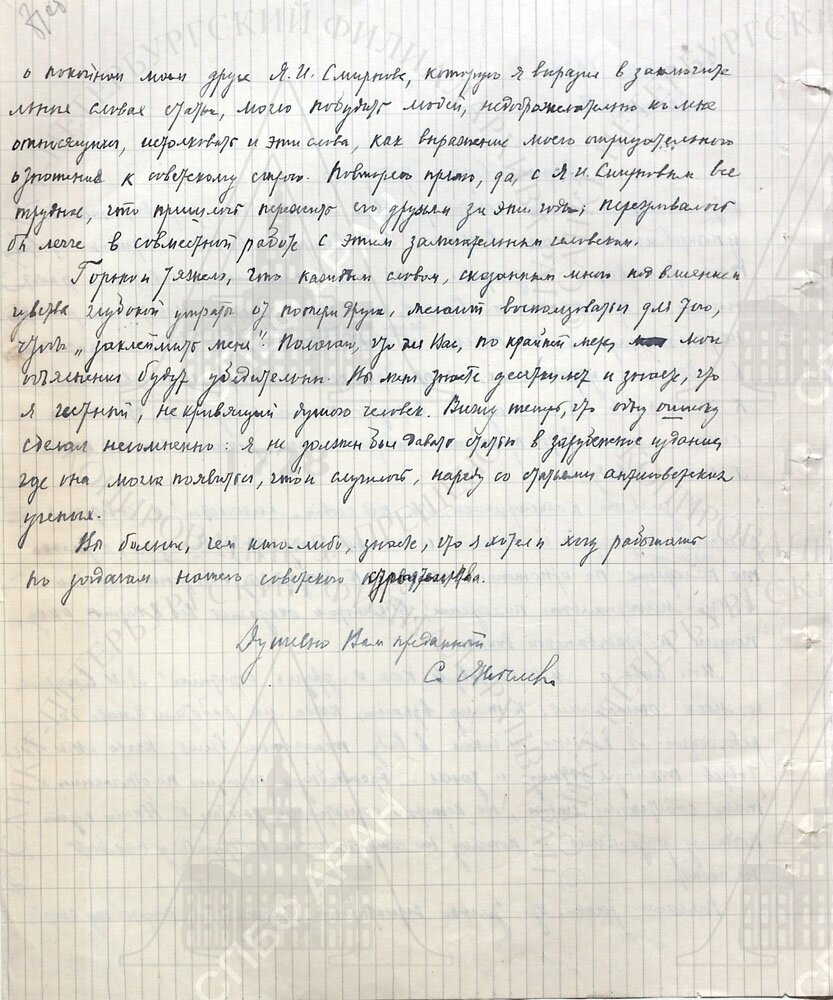 о покойном моем друге Я.И. Смирнове, которую я выразил в заключите
льных словах статьи, могло побудить людей, недоброжелательно ко мне
относящихся, истолковать и эти слова, как выражение моего отрицательного
отношения к советскому строю. Повторяю прямо, да, с Я.И. Смирновым все
трудное, что пришлось пережить его друзьям за эти годы; переживалось
бы легче в совместной работе с этим замечательным человеком.
Горько и тяжело, что каждым словом, сказанным мною под влиянием
чувства глубокой утраты от потери друга, желают воспользоваться для того,
чтобы „заклеймить меня". Полагаю, что для Вас, по крайней мере, мои
объяснения будут убедительны. Вы меня знаете десятки лет и знаете, что
я честный, не кривящий душою человек. Вижу теперь, что одну ошибку
сделал несомненно: я не должен был давать статью в зарубежное издание,
где она могла появиться, что и случилось, наряду со статьями антисоветских
ученых.
Вы больше, чем кто-либо, знаете, что я хотел и хочу работать
по заданиям нашего советского
Душевно Вам преданный
С. Жебелев
СПБФ АРАН